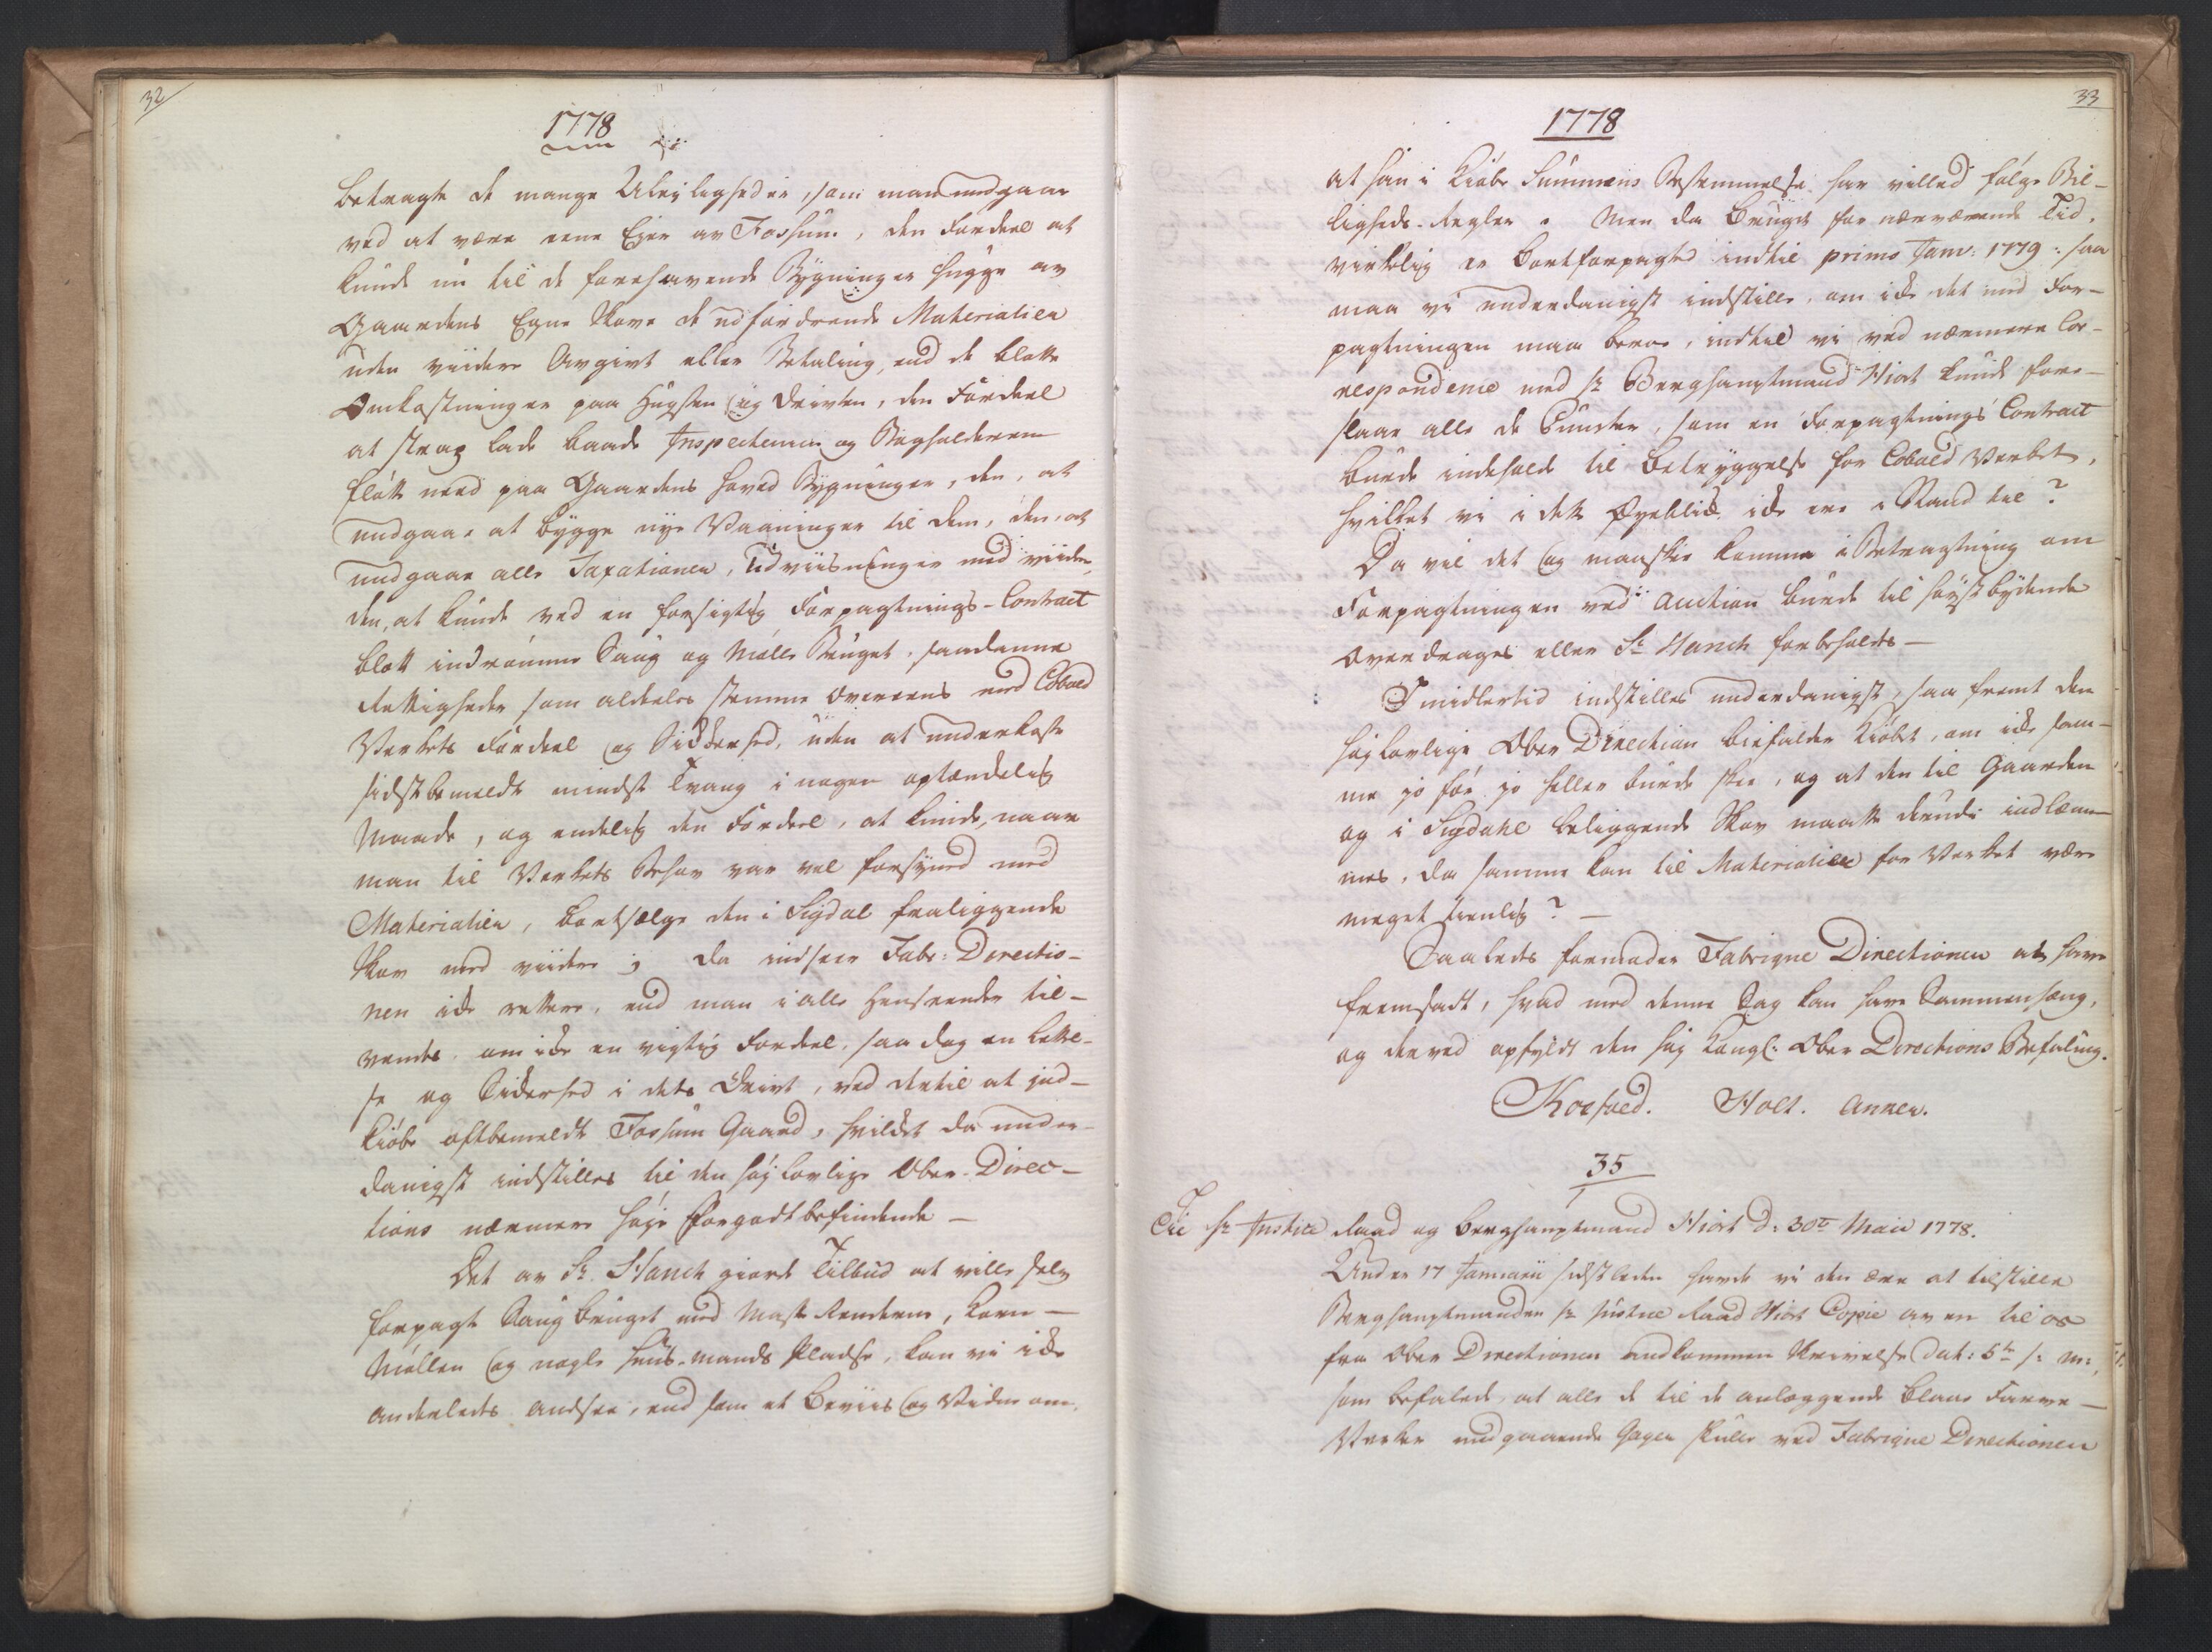 32
1778
betragte de mange Uleyligheder, som man undgaaer
ved at være eene Ejer av Fossum, den Fordeel at
kunde nu til de forehavende Bygninger hugge av
Gaardens Egne Skove de udfordrende Materialier
uden viidere Avgivt eller Betaling, end de blotte
Omkostninger paa Hugsten og Drivten, den Fordeel
at strax lade baade Inspecteuren og Bogholderen
flötte need paa Gaardens Hoved Bygninger, den, at
undgaae at bygge nye Vaaninger til dem, den, at
undgaae alle Taxationer, Udviisninger med viidere,
den, at kunde ved en forsigtig Forpagtnings-Contract
blott indrömme Saug og Mölle Bruget saadanne
Rettigheder som aldeeles stemme overeens med Cobold
Verkets Fordeel og Sikkerhed, uden at underkaste
sidstbemeldte mindste Tvang i nogen optænkelig
Maade, og endelig den Fordeel, at kunde, naar
man til Verkets Behov var vel forsÿned med
Materialier, bortsælge den i Sigdal fraliggende
Skov med viidere; da indseer Fabr: Directio-
nen ikke rettere, end man i alle Henseender til-
vendte, om ikke en vigtig Fordeel, saa dog en Lettel-
se og Sikerhed i dets Drivt, ved dertil at ind-
kiöbe oftbemeldte Fossum Gaard, hvilket da under-
danigst indstilles til den höjlovlige Ober-Direc-
tions nærmere höje Forgodtbefindende —
Det av Sr. Hanch giorde Tilbud at ville selv
forpagte Saug bruget med Maste Renderne, Korn-
Möllen og nogle Huus-mands Pladse, kan vi ikke
anderledes ansee, end som et Beviis og Vidne om,
33
1778
at han i Kiöbe Summens Bestemmelse har villed fölge Bil-
ligheds-Regler. Men da Bruget for nærværende Tid
virkelig er bortforpagted indtil primo Janv: 1779: saa
maa vi underdanigst indstille, om ikke det med For-
pagtningen maa beroe, indtil vi ved nærmere Cor-
respondence med Hr Berghauptmand Hiort kunde fore-
slaae alle de Puncter, som en Forpagtnings Contract
burde indeholde til Betryggelse for Cobold Verket,
hvilket vi i dette Öyeblik ikke ere i Stand til?
Da vil det og maaskee komme i Betragtning om
Forpagtningen ved Auction burde til höystbydende
overdrages eller Sr Hanch forbeholdes —
Imidlertid indstilles underdanigst, saa fremt den
höjlovlige Ober Direction biefalder Kiöbet, om ikke sam-
me jo för jo heller burde skee, og at den til Gaarden
og i Sigdahl beliggende Skov maatte derunder indlem-
mes, da samme kan til Materialier for Verket være
meget tienlig? —
Saaledes formoder Fabrique Directionen at have
fremsadt, hvad med denne Sag kan have Sammenhæng,
og derved opfyldt den höj Kongl: Ober Directions Befaling.
Koefoed. Holt. Anker.
35
Til Hr Justice Raad og Berghauptmand Hiort d: 30te Maii 1778.
Under 17 Januarii sidstleden havde vi den ære at tilstille
Berghauptmanden Hr Justice Raad Hiort Copie av en til os
fra Ober Directionen indkommen Skrivelse dat: 5te s: m:,
som befalede, at alle de til de anlæggende blaae Farve-
Verker medgaaende Gager skulle ved Fabrique Directionen